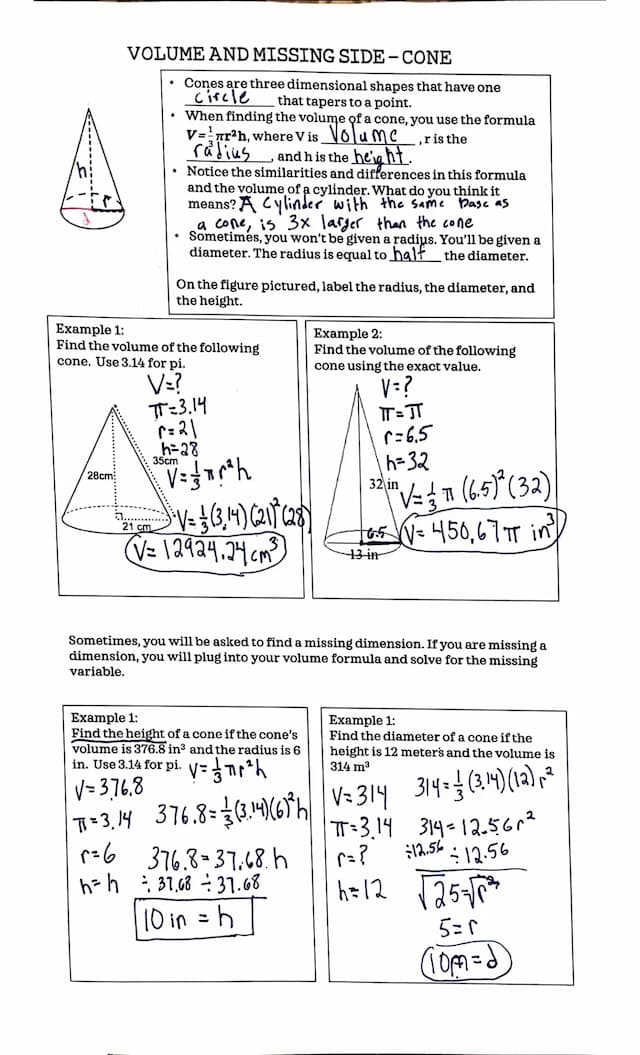 VOLUME AND MISSING SIDE – CONE
• Cones are three dimensional shapes that have one
circle that tapers to a point.
• When finding the volume of a cone, you use the formula
V=1/3πr²h, where V is Volume, r is the
radius, and h is the height.
• Notice the similarities and differences in this formula
and the volume of a cylinder. What do you think it
means? A cylinder with the same base as
a cone, is 3x larger than the cone
• Sometimes, you won't be given a radius. You'll be given a
diameter. The radius is equal to half the diameter.
On the figure pictured, label the radius, the diameter, and
the height.
h
r
d
Example 1:
Find the volume of the following
cone. Use 3.14 for pi.
V=?
π=3.14
r=21
h=28
35cm
28cm
21 cm
V=1/3 π r²h
V=1/3(3.14)(21)²(28)
V=12924.24cm³
Example 2:
Find the volume of the following
cone using the exact value.
V=?
π=π
r=6.5
h=32
32 in
V=1/3 π (6.5)²(32)
6.5
13 in
V=450.67π in³
Sometimes, you will be asked to find a missing dimension. If you are missing a
dimension, you will plug into your volume formula and solve for the missing
variable.
Example 1:
Find the height of a cone if the cone's
volume is 376.8 in³ and the radius is 6
in. Use 3.14 for pi. V=1/3πr²h
V=376.8
π=3.14 376.8=1/3(3.14)(6)²h
r=6 376.8=37.68h
h=h ÷37.68 ÷37.68
10 in = h
Example 1:
Find the diameter of a cone if the
height is 12 meters and the volume is
314 m³
V=314 314=1/3(3.14)(12)r²
π=3.14 314=12.56r²
r=? ÷12.56 ÷12.56
h=12 √25=√r²
5=r
10m=d